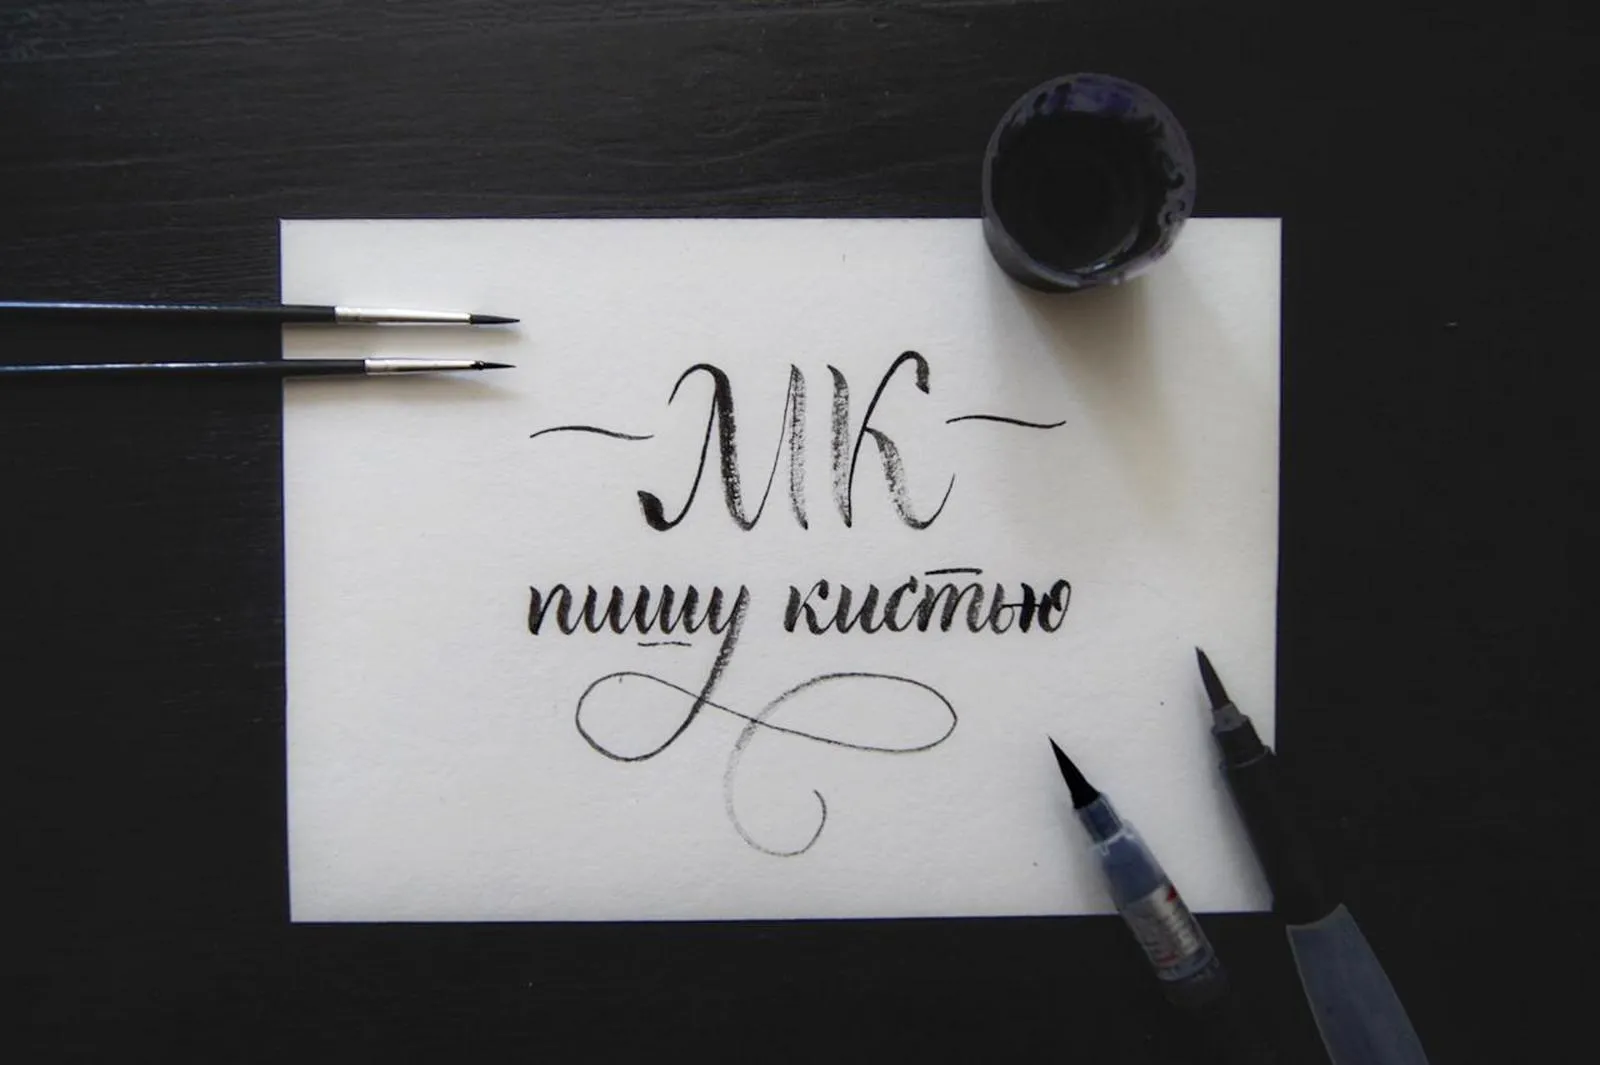 ~МК~
пишу кистью